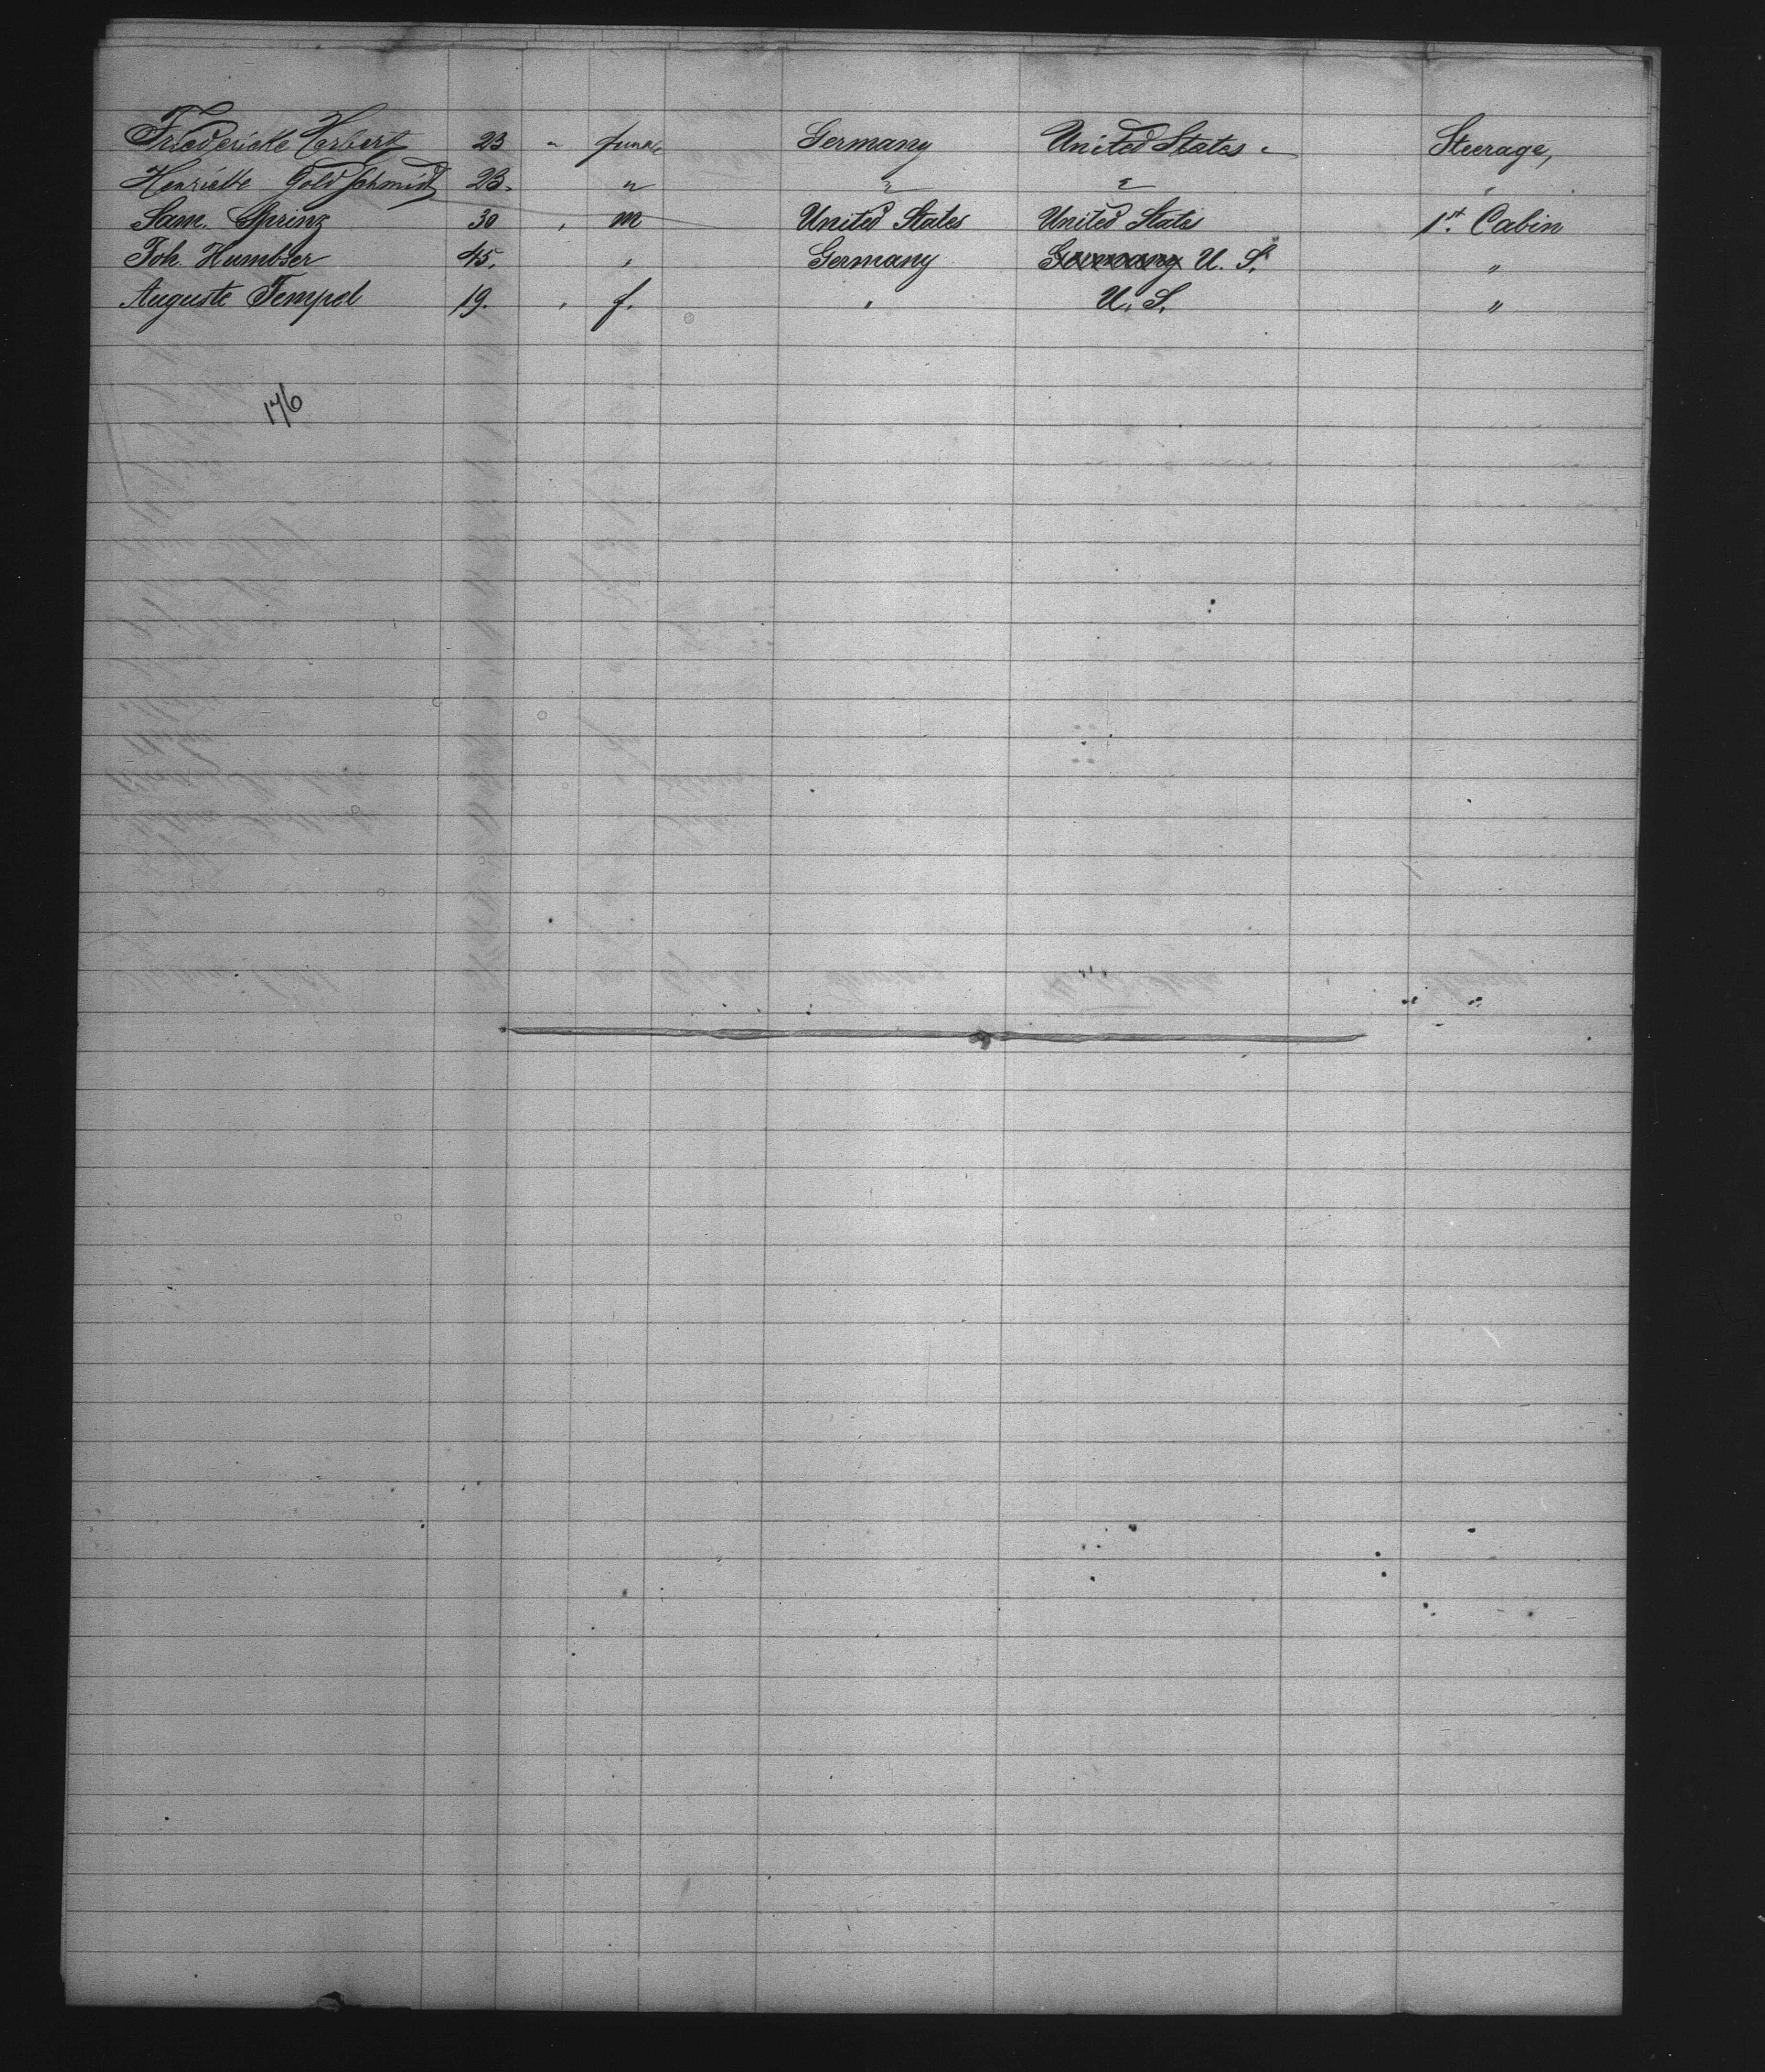 Friedericke Herbert 23 " female Germany United States " Steerage,
Henriette Goldschmidt 23. " " " "
Sam. Sprinz 30 " m United States United States 1st. Cabin
Joh. Humbser 45. " Germany Germany U. S. "
Auguste Tempel 19. " f. " U. S. "
176